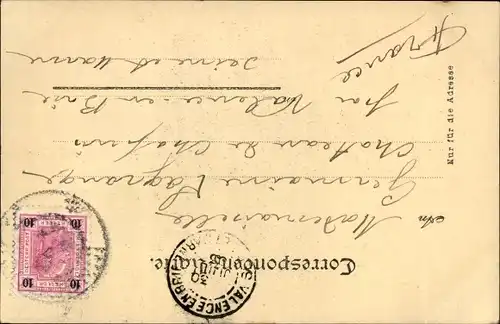 Correspondenz-Karte.
An Mademoiselle
Germaine Lagrange
Château de Chapuis
par Valence-en-Brie
Seine et Marne
France
Nur für die Adresse
10 10
10 10
VALENCE EN BRIE
30